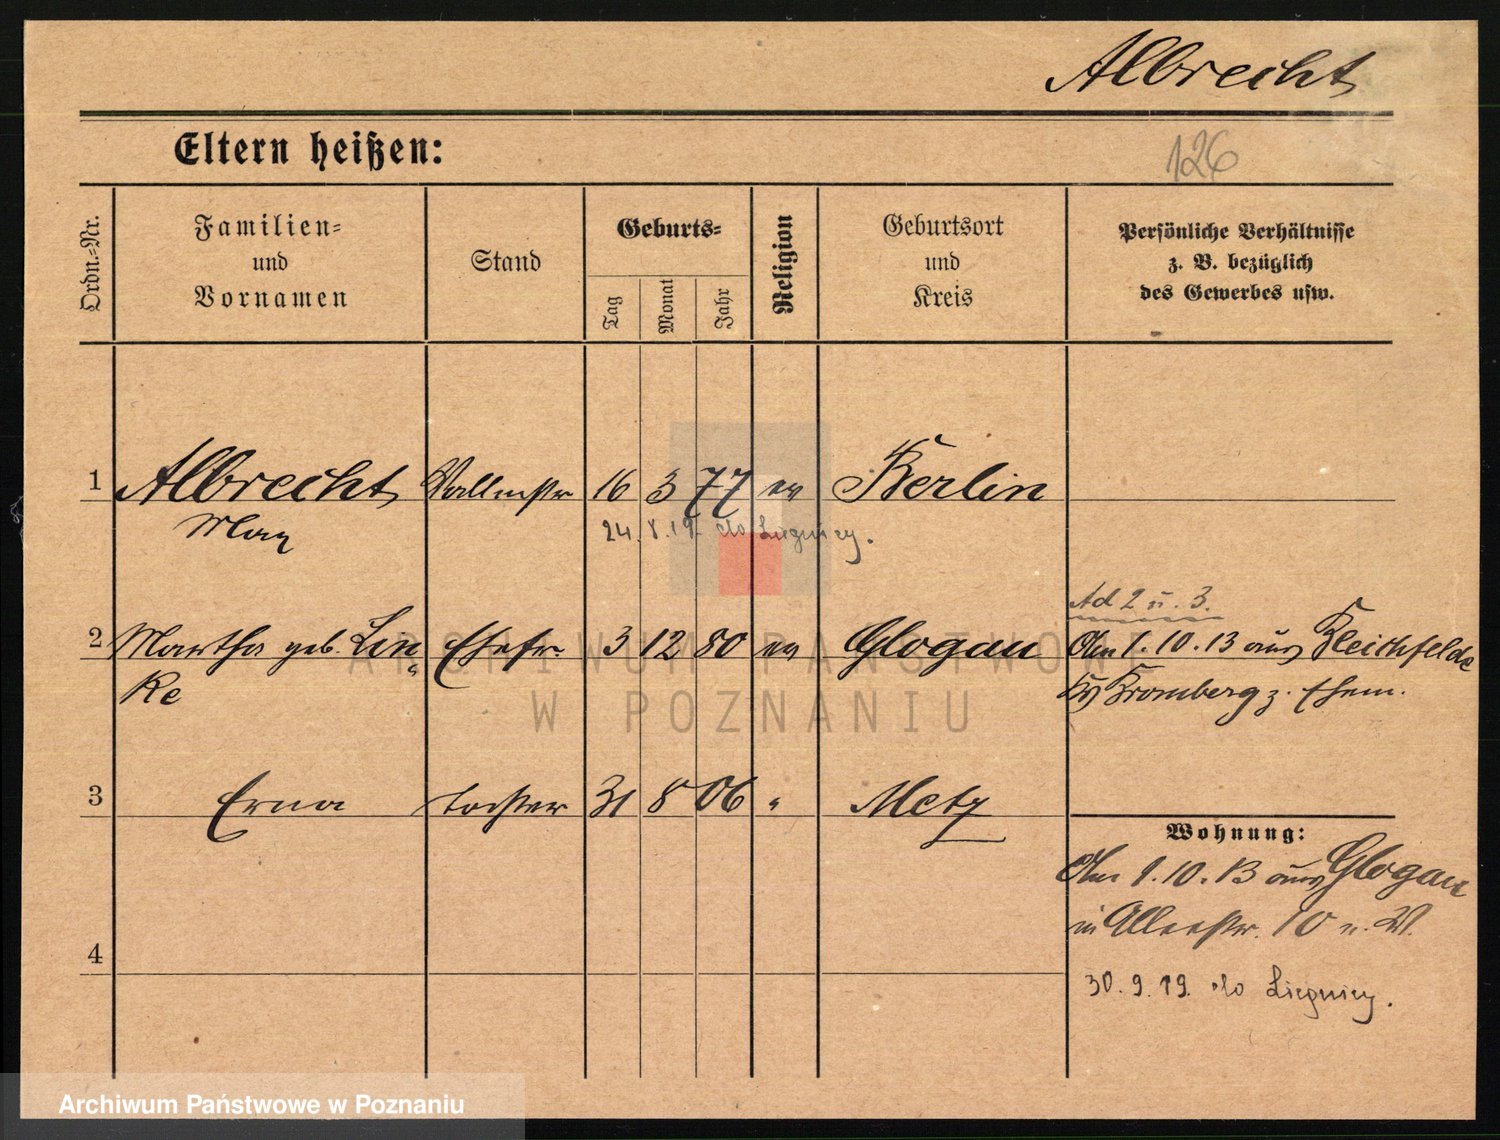 Albrecht
Eltern heißen:
126
Ordn.-Nr.
Familien-
und
Vornamen
Stand
Geburts-
Tag
Monat
Jahr
Religion
Geburtsort
und
Kreis
Persönliche Verhältnisse
z. B. bezüglich
des Gewerbes usw.
1 Albrecht 16 3 77 ev Berlin
Max
24. 8. 19. do Liegnicy.
Ad 2 u. 3.
2 Martha geb. Len Ehefr. 3 12 80 ev Glogau 1.10.13 aus
ke
Bromberg z. Ehem.
3 Erna Tochter 31 8 06 " Metz
Wohnung:
1.10.13 aus Glogau
in Alleestr. 10 u. W.
4
30.9.19. do Liegnicy.
ARCHIWUM PAŃSTWOWE
W POZNANIU
Archiwum Państwowe w Poznaniu